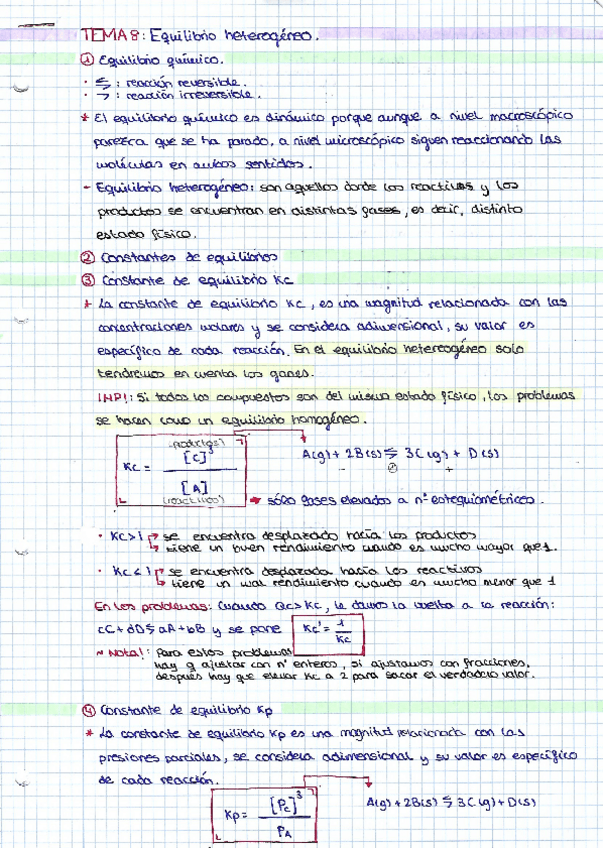 TEMA 8: Equilibrio heterogéneo.
① Equilibrio químico.
· ⇆ : reacción reversible.
· → : reacción irreversible.
* El equilibrio químico es dinámico porque aunque a nivel macroscópico
parezca que se ha parado, a nivel microscópico siguen reaccionando las
moléculas en ambos sentidos.
- Equilibrio heterogéneo: son aquellos donde los reactivos y los
productos se encuentran en distintas gases, es decir, distinto
estado físico.
② Constantes de equilibrios
③ Constante de equilibrio Kc
* La constante de equilibrio Kc, es una magnitud relacionada con las
concentraciones molares y se considera adimensional, su valor es
específico de cada reacción. En el equilibrio hetereogéneo solo
tendremos en cuenta los gases.
¡INP!: Si todos los compuestos son del mismo estado físico, los problemas
se hacen como un equilibrio homogéneo.
Kc = [C] / [A]
(reactivos)
A(g) + 2B(s) ⇆ 3C(g) + D(s)
→ sólo gases elevados a nº estequiométricos.
· Kc>1 → se encuentra desplazado hacia los productos
→ tiene un buen rendimiento cuando es mucho mayor que 1.
· Kc<1 → se encuentra desplazada hacia los reactivos
→ tiene un mal rendimiento cuando es mucho menor que 1
En los problemas: Cuando Qc>Kc, le damos la vuelta a la reacción:
cC + dD ⇆ aA + bB y se pone Kc' = 1/Kc
~ Nota!: Para estos problemas
hay q ajustar con nº enteros, si ajustamos con fracciones,
después hay que elevar Kc a 2 para sacar el verdadero valor.
④ Constante de equilibrio Kp
* La constante de equilibrio Kp es una magnitud relacionada con las
presiones parciales, se considera adimensional y su valor es específico
de cada reacción.
Kp = [Pc]³ / PA
A(g) + 2B(s) ⇆ 3C(g) + D(s)